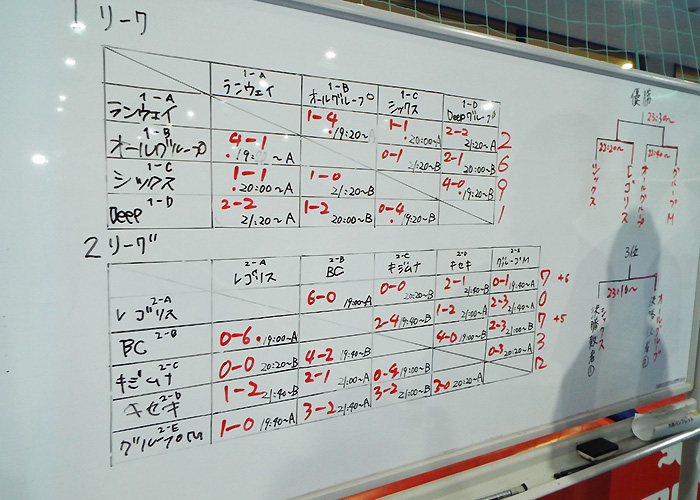 1 リーグ
1-A ランウェイ 1-B オールグループ 1-C シックス 1-D Deepグループ
1-A ランウェイ 1-4 19:20~A 1-1 20:00~A 2-2 21:20~A 2
1-B オールグループ 4-1 ~A 0-1 21:20~B 2-1 20:00~B 6
1-C シックス 1-1 20:00~A 1-0 21:20~B 4-0 19:20~B 9
1-D Deep 2-2 21:20~A 1-2 20:00~B 0-4 19:20~B 1
2 リーグ
2-A レゴリス 2-B BC 2-C キジムナ 2-D キセキ 2-E グループM
2-A レゴリス 6-0 19:00~A 0-0 20:20~B 2-1 21:40~B 0-1 19:40~A 7 +6
2-B BC 0-6 19:00~A 2-4 19:40~B 1-2 21:00~A 2-3 21:40~A 0
2-C キジムナ 0-0 20:20~B 4-2 19:40~B 4-0 19:00~B 2-3 21:00~B 7 +5
2-D キセキ 1-2 21:40~B 2-1 21:00~A 0-4 19:00~B 0-3 20:20~A 3
2-E グループM 1-0 19:40~A 3-2 21:40~A 3-2 21:00~B 3-0 20:20~A 12
優勝
23:30~
22:20~ 22:40~
シックス
レゴリス
グループM
3位
23:10~
シックス
決勝敗者①